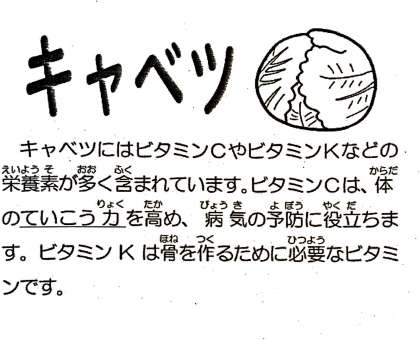 キャベツ
キャベツにはビタミンCやビタミンKなどの
栄養素が多く含まれています。ビタミンCは、体
のていこう力を高め、病気の予防に役立ちま
す。ビタミンKは骨を作るために必要なビタミ
ンです。